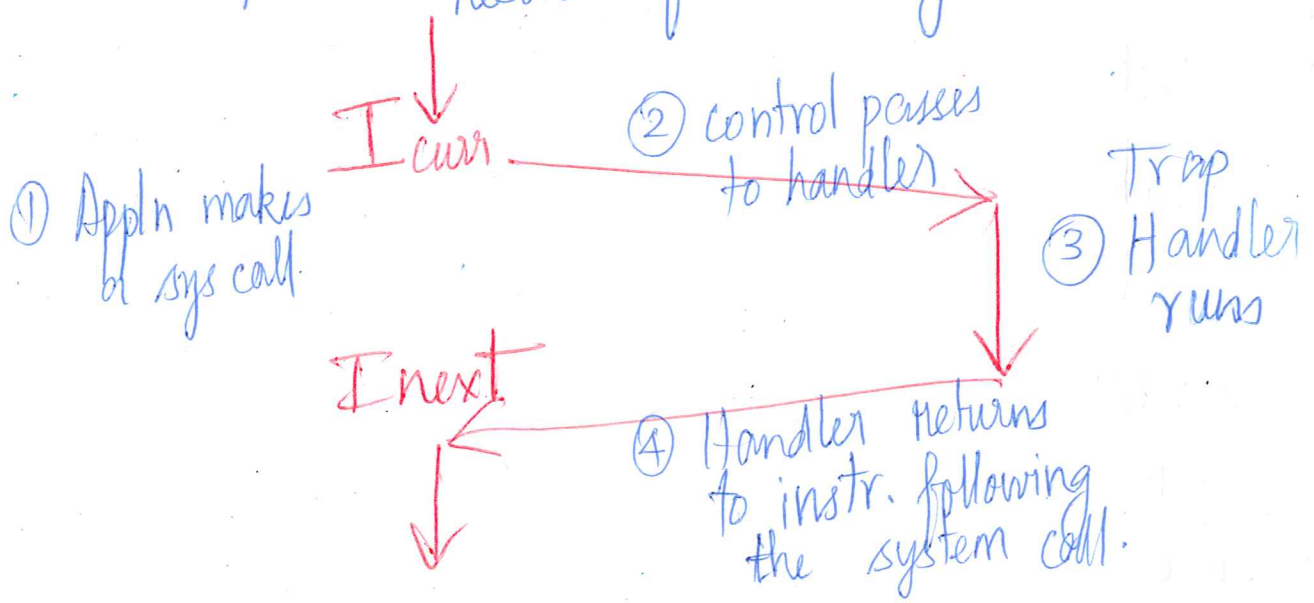 I curr
① Appln makes
a sys call.
② control passes
to handler
Trap
③ Handler
runs
I next
④ Handler returns
to instr. following
the system call.